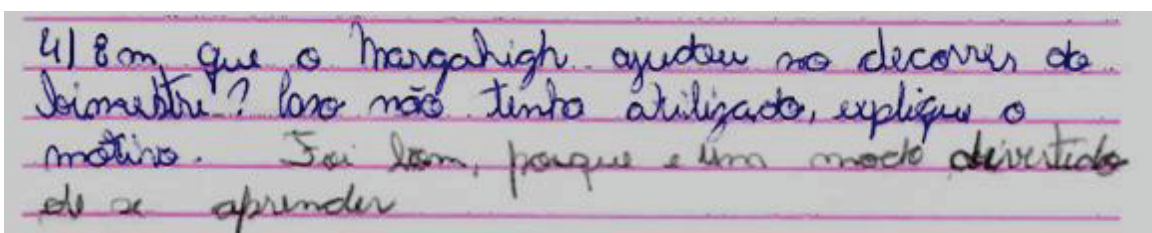 4) Em que o Margahigh ajudou no decorrer do
bimestre? Caso não tenha utilizado, explique o
motivo. Foi bom, porque e um modo divertido
de se aprender